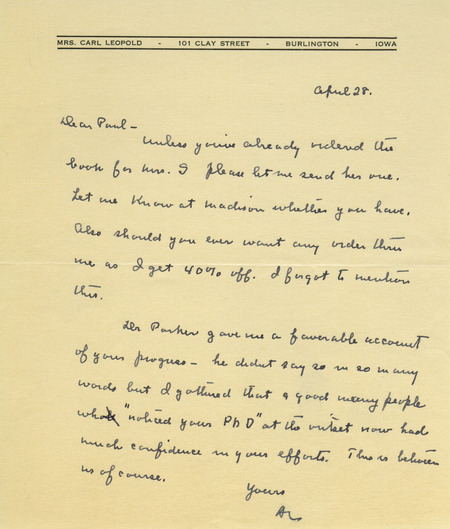 MRS. CARL LEOPOLD - 101 CLAY STREET - BURLINGTON - IOWA
April 28.
Dear Paul -
Unless you've already ordered the
book for Mrs. I please let me send her one.
Let me know at Madison whether you have.
Also should you ever want any order thru
me as I get 40% off. I forgot to mention
this.
Dr Parker gave me a favorable account
of your progress - he didn't say so in so many
words but I gathered that a good many people
who "noticed your PhD" at the outset now had
much confidence in your efforts. This is between
us of course.
Yours
AL